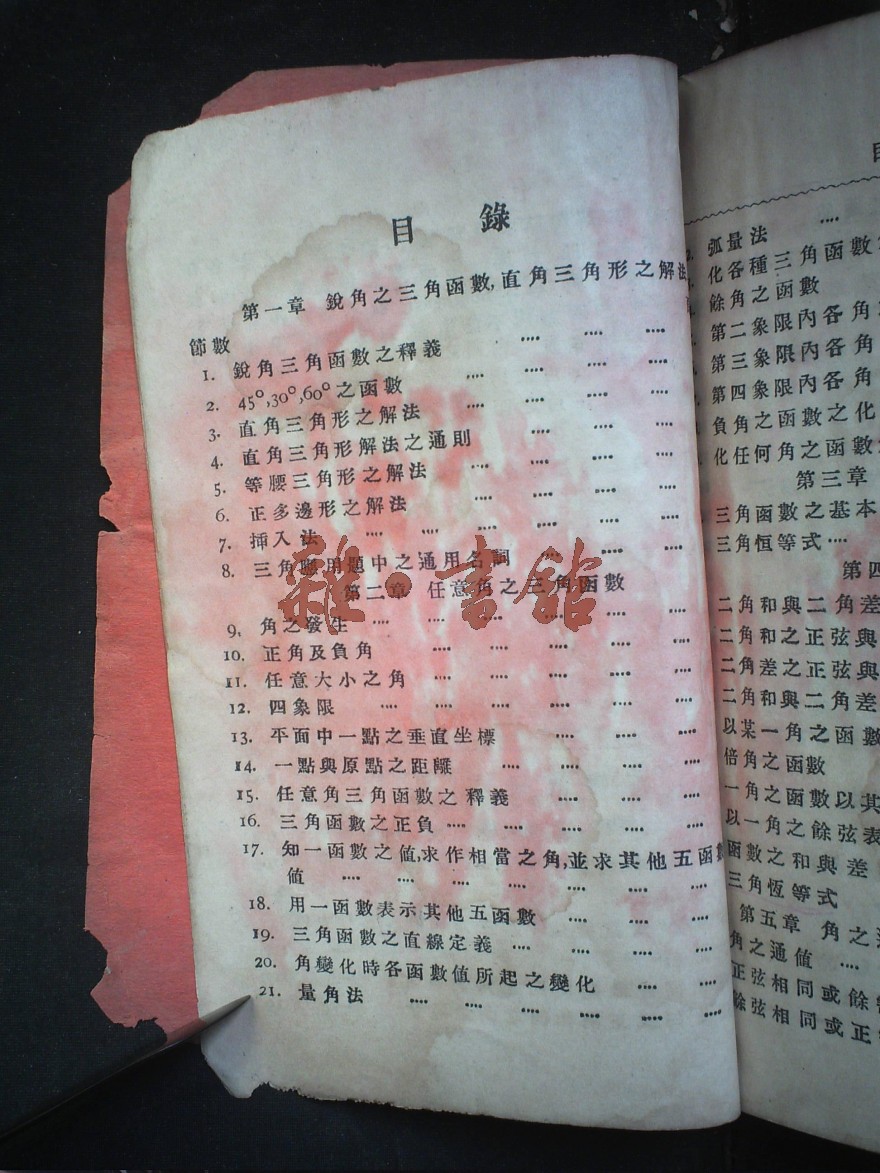 目錄
第一章 銳角之三角函數,直角三角形之解法
節數
1. 銳角三角函數之釋義 .... .... ....
2. 45°,30°,60°之函數 .... .... .... ....
3. 直角三角形之解法 .... .... .... ....
4. 直角三角形解法之通則 .... .... ....
5. 等腰三角形之解法 .... .... .... ....
6. 正多邊形之解法 .... .... .... ....
7. 插入法 .... .... .... .... .... ....
8. 三角應用題中之通用名詞 .... .... ....
第二章 任意角之三角函數
9. 角之發生 .... .... .... .... .... ....
10. 正角及負角 .... .... .... .... ....
11. 任意大小之角 .... .... .... .... ....
12. 四象限 .... .... .... .... .... ....
13. 平面中一點之垂直坐標 .... .... ....
14. 一點與原點之距離 .... .... .... ....
15. 任意角三角函數之釋義 .... .... ....
16. 三角函數之正負 .... .... .... .... ....
17. 知一函數之值,求作相當之角,並求其他五函數
值 .... .... .... .... .... .... ....
18. 用一函數表示其他五函數 .... .... ....
19. 三角函數之直線定義 .... .... .... ....
20. 角變化時各函數值所起之變化 .... ....
21. 量角法 .... .... .... .... .... ....
雜·書館
弧量法 ....
化各種三角函數
餘角之函數
第二象限內各角
第三象限內各角
第四象限內各角
負角之函數之化
化任何角之函數
第三章
三角函數之基本
三角恒等式 ....
第四
二角和與二角差
二角和之正弦與
二角差之正弦與
二角和與二角差
以某一角之函數
倍角之函數
一角之函數以其
以一角之餘弦表
函數之和與差
三角恆等式
第五章 角之
角之通值 ....
正弦相同或餘
餘弦相同或正